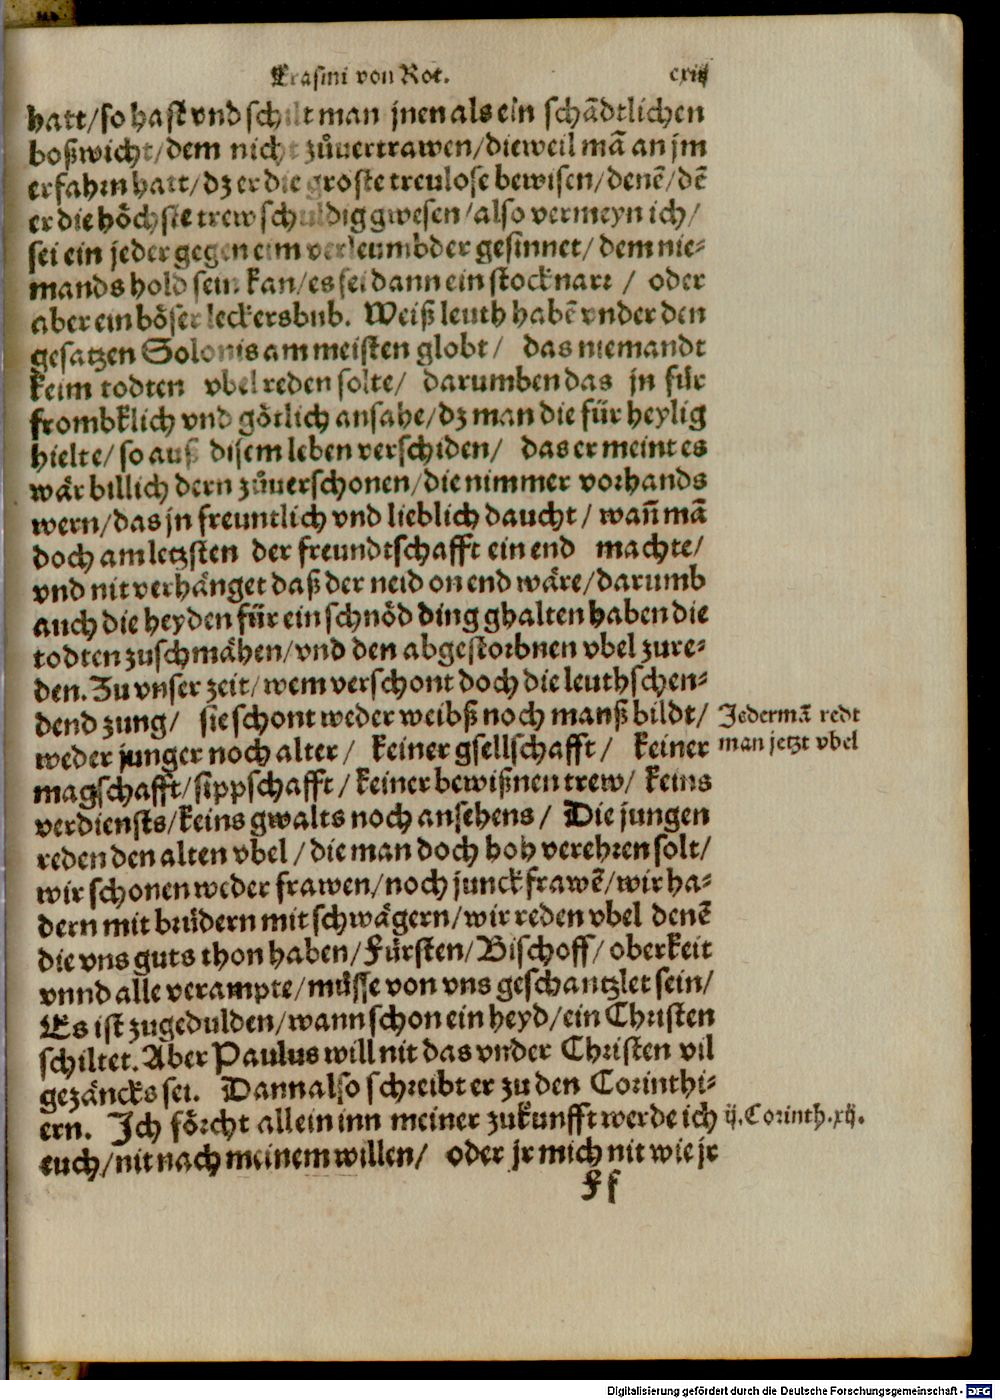 Erasmi von Rot. cxiij
hatt/so hast vnd schilt man jnen als ein schādtlichen
boßwicht/dem nicht zůuertrawen/dieweil mā an jm
erfahrn hatt/dz er die groste treulose bewisen/denē/dē
er die höchste trew schuldig gwesen/also vermeyn ich/
sei ein jeder gegen eim verleumbder gesinnet/dem nie-
mands hold sein kan/es sei dann ein stocknarr / oder
aber ein böser leckersbub. Weiß leuth habē vnder den
gesatzen Solonis am meisten globt/ das niemandt
keim todten vbel reden solte/ darumben das jn für
frombklich vnd götlich ansahe/dz man die für heylig
hielte/so auß disem leben verschiden/ das er meint es
wär billich dern zůuerschonen/die nimmer vorhands
wern/das jn freuntlich vnd lieblich daucht/wañ mā
doch am letzsten der freundtschafft ein end machte/
vnd nit verhänget daß der neid on end wäre/darumb
auch die heyden für ein schnöd ding ghalten haben die
todten zuschmähen/vnd den abgestorbnen vbel zure-
den. Zu vnser zeit/wem verschont doch die leuthschen-
dend zung/ sie schont weder weibß noch manß bildt/
weder junger noch alter/ keiner gsellschafft/ keiner
magschafft/sippschafft/keiner bewißnen trew/ keins
verdiensts/keins gwalts noch ansehens/ Die jungen
reden den alten vbel/die man doch hoh verehren solt/
wir schonen weder frawen/noch junckfrawē/wir ha-
dern mit brüdern mit schwägern/wir reden vbel denē
die vns guts thon haben/Fürsten/Bischoff/oberkeit
vnnd alle verampte/müsse von vns geschantzlet sein/
Es ist zugedulden/wann schon ein heyd/ein Christen
schiltet. Aber Paulus will nit das vnder Christen vil
gezäncks sei. Dann also schreibt er zu den Corinthi-
ern. Ich förcht allein inn meiner zukunfft werde ich
euch/nit nach meinem willen/ oder jr mich nit wie jr
Ff
Jedermā redt
man jetzt vbel
ij.Corinth.xij.
Digitalisierung gefördert durch die Deutsche Forschungsgemeinschaft - DFG